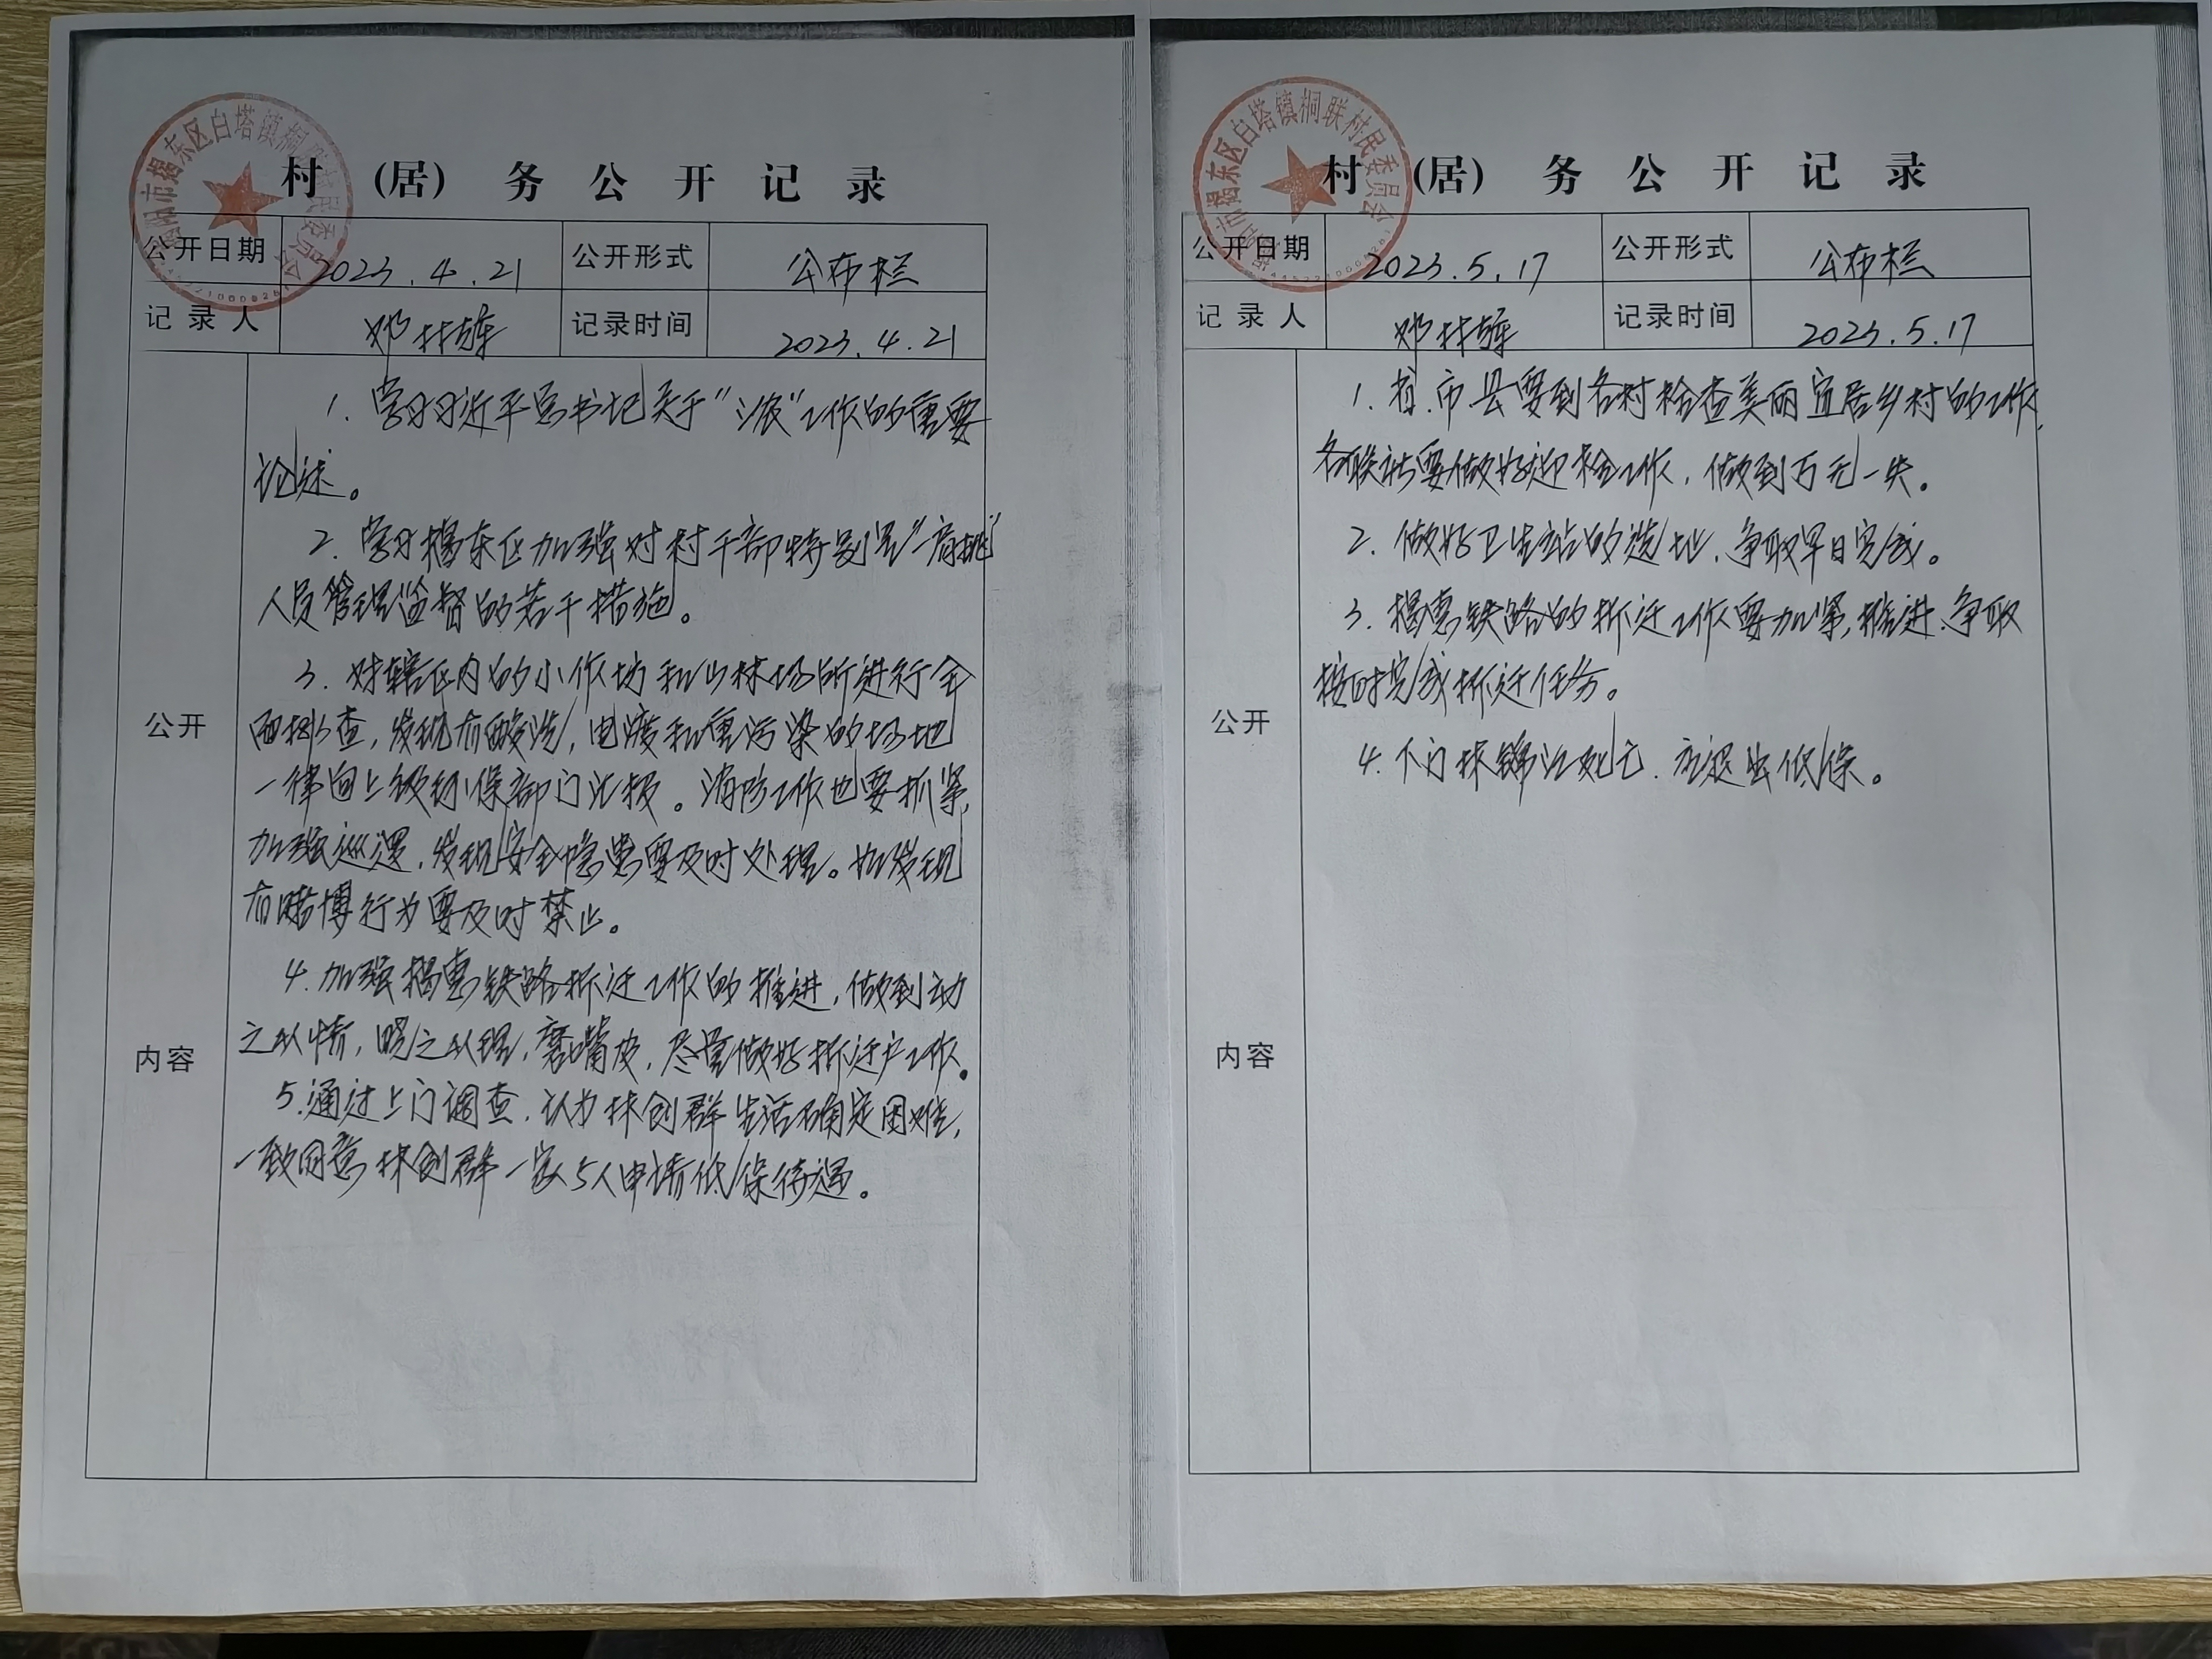 揭阳市揭东区白塔镇桐联村民委员会
村 (居) 务 公 开 记 录
公开日期 2023.4.21 公开形式 公布栏
记录人 邓 记录时间 2023.4.21
公开
内容
1. 学习习近平总书记关于“三农”工作的重要
论述。
2. 学习揭东区加强对村干部特别是“一肩挑”
人员管理监督的若干措施。
3. 对辖区内的小作坊和山林场所进行全
面排查,发现有酸洗,电渡和重污染的场地
一律向上级环保部门汇报。消防工作也要抓紧,
加强巡逻,发现安全隐患要及时处理。如发现
有赌博行为要及时禁止。
4. 加强揭惠铁路拆迁工作的推进,做到动
之以情,晓之以理,磨嘴皮,尽量做好拆迁户工作。
5. 通过上门调查,认为林创群生活确定困难,
一致同意林创群一家5人申请低保待遇。
市揭东区白塔镇桐联村民委员会
村 (居) 务 公 开 记 录
公开日期 2023.5.17 公开形式 公布栏
记录人 邓 记录时间 2023.5.17
公开
内容
1. 省.市.县要到各村检查美丽宜居乡村的工作,
各联社要做好迎检工作,做到万无一失。
2. 做好卫生站的选址,争取早日完成。
3. 揭惠铁路的拆迁工作要加紧,推进,争取
按时完成拆迁任务。
4. 下门林江死亡,应退出低保。